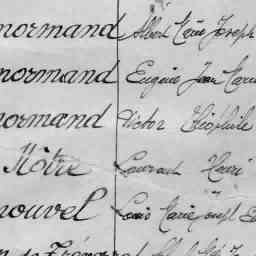 normand Albert Marie Joseph
normand Eugène Jean Marie
normand Victor Théophile
Nôtre Laurent Henri
nouvel Louis Marie Joseph